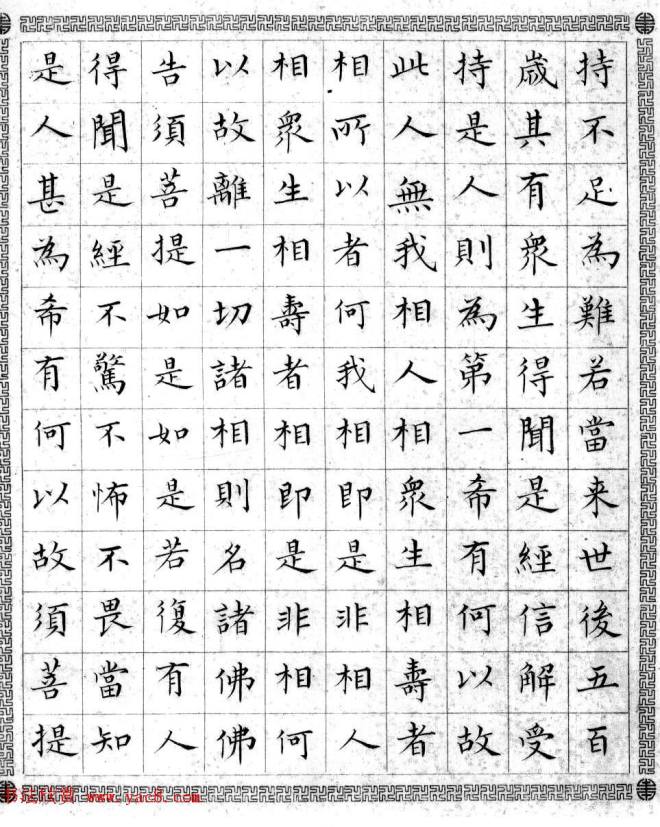 持不足為難若當来世後五百
歲其有衆生得聞是經信解受
持是人則為第一希有何以故
此人無我相人相衆生相壽者
相所以者何我相即是非相人
相衆生相壽者相即是非相何
以故離一切諸相則名諸佛佛
告須菩提如是如是若復有人
得聞是經不驚不怖不畏當知
是人甚為希有何以故須菩提
www.yac8.com